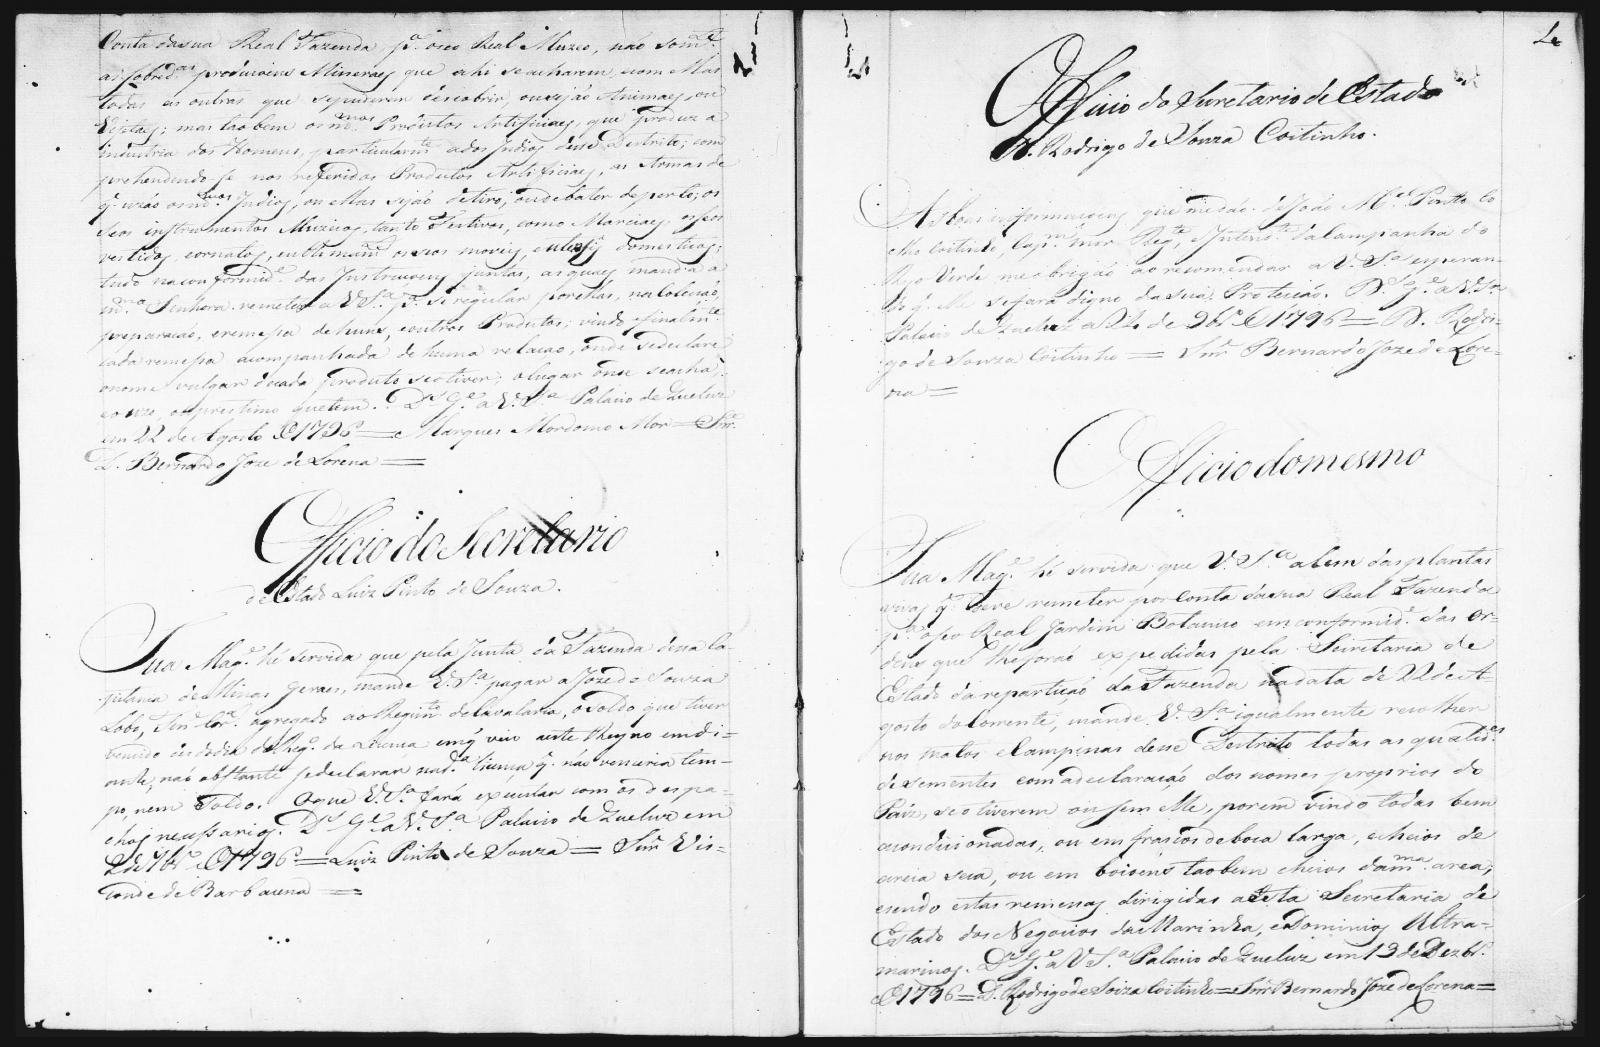 Conta dasua Real Fazenda, p.ª oseo Real Muzeo, não som.te
as sobred.as producoens Mineraes que ahi se acharem, com Mas
todas as outras que sepuderem descobrir, ou sejão Animaes, ou
Vegetaes; mas taobem os m.mos Produtos Artificiaes, que produz a
industria dos Homens, particularm.te a dos Indios desse Destrito; com
prehendendo-se nos referidos Produtos Artificiaes, as Armas de
q. uzão os m.mos Indios, ou ellas sejão de tiro, ou de bater de perto; os
seos instrumentos Muzicos, tanto Festivos, como Marciaes, os seos
vestidos, e ornatos, e ultimam.te os seos moveis, e utensis domesticos;
tudo na conformid.e das Instrucoens juntas, as quaes manda a
m.ma Senhora remeter a V. S.ª p.ª se regular por ellas, na coleicão,
preparacaõ, e remessa de huns, e outros Produtos; vindo finalm.te
cada remessa acompanhada de huma relacaõ, onde se declare
o nome vulgar de cada produto se o tiver; o lugar onde se acha;
e o uzo, ou prestimo que tem. D.s G.e a V. S.ª Palacio de Queluz
em 22 de Agosto de 1796 = Marques Mordomo Mor = Snr.
D. Bernardo Joze de Lorena =
Officio do Secretario
de Estado Luiz Pinto de Souza.
Sua Mag.e hé servida que pela Junta da Fazenda dessa Ca-
pitania de Minas Geraes, mande V. S.ª pagar a Joze de Souza
Lobo, Ten.e Cor.el agregado ao Regim.to de Cavalaria, o soldo que tiver
vencido desde o dia do Reg.o da Licença em q. veio a este Reyno em di-
ante, não obstante se declarar na d.ª licença q. não venceria tem-
po, nem soldo. O que V. S.ª fará executar com os despa-
chos necessarios. D.s G.e a V. S.ª Palacio de Queluz em
2 de 7br.o de 1796 = Luiz Pinto de Souza = Snr. Vis-
conde de Barbacena =
Officio do Secretario de Estado
D. Rodrigo de Souza Coitinho.
As boas informacoens que me dão de João M.el Pinto Co
elho Coitinho, Cap.m mor Reg.te, e Intend.te da Campanha do
Ryo Verde me obrigão ao recomendar a V. S.ª esperan-
do q. Elle se fará digno da sua Protecção. D.s G.e a V. S.ª
Palacio de Queluz a 24 de 9br.o de 1796 = D. Rodri-
go de Souza Coitinho = Snr. Bernardo Joze de Lore-
na =
Officio do mesmo
Sua Mag.e hé servida que V. S.ª alem das plantas
vivas q. deve remeter por conta da sua Real Fazenda
p.ª o seo Real Jardim Botanico em conformid.e das or-
dens que lhe foraõ expedidas pela Secretaria de
Estado da repartição da Fazenda na data de 22 de A-
gosto do Corrente, mande V. S.ª igualmente recolher
nos matos e Campinas desse Destrito todas as qualid.es
de sementes com a declaraçaõ dos nomes proprios do
Paiz, se o tiverem ou sem elle, porem vindo todas bem
acondicionadas, ou em frascos de boca larga, e cheios de
areia seca, ou em boioens taobem cheios da m.ma area,
e sendo estas remessas dirigidas a esta Secretaria de
Estado dos Negocios da Marinha, e Dominios Ultra-
marinos. D.s G.e a V. S.ª Palacio de Queluz em 13 de Dezbr.o
de 1796 = D. Rodrigo de Soiza Coitinho = Snr. Bernardo Joze de Lorena =